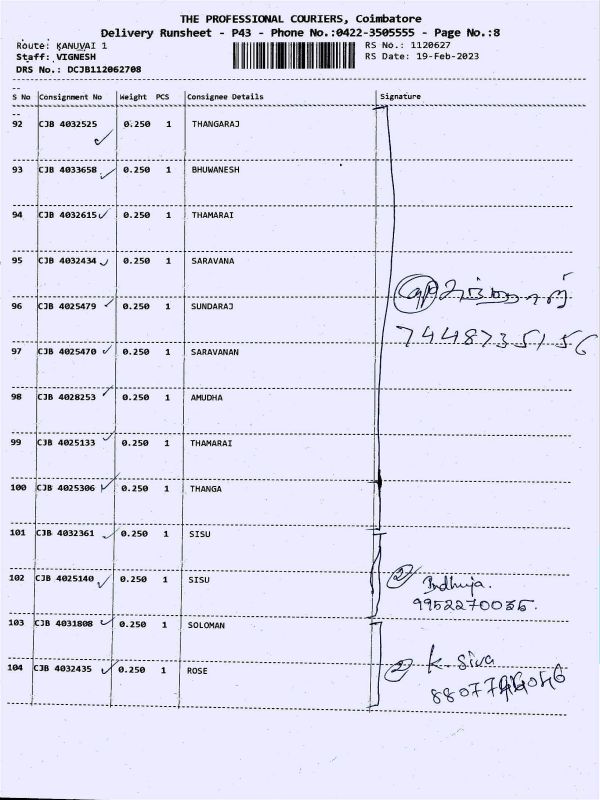 THE PROFESSIONAL COURIERS, Coimbatore
Delivery Runsheet - P43 - Phone No.:0422-3505555 - Page No.:8
Route: KANUVAI 1 RS No.: 1120627
Staff: VIGNESH RS Date: 19-Feb-2023
DRS No.: DCJB112062708
S No Consignment No Weight PCS Consignee Details Signature
92 CJB 4032525 0.250 1 THANGARAJ
93 CJB 4033658 0.250 1 BHUWANESH
94 CJB 4032615 0.250 1 THAMARAI
95 CJB 4032434 0.250 1 SARAVANA
96 CJB 4025479 0.250 1 SUNDARAJ
7448735156
97 CJB 4025470 0.250 1 SARAVANAN
98 CJB 4028253 0.250 1 AMUDHA
99 CJB 4025133 0.250 1 THAMARAI
100 CJB 4025306 0.250 1 THANGA
101 CJB 4032361 0.250 1 SISU
102 CJB 4025140 0.250 1 SISU
2
103 CJB 4031808 0.250 1 SOLOMAN
2 K. Siva
104 CJB 4032435 0.250 1 ROSE